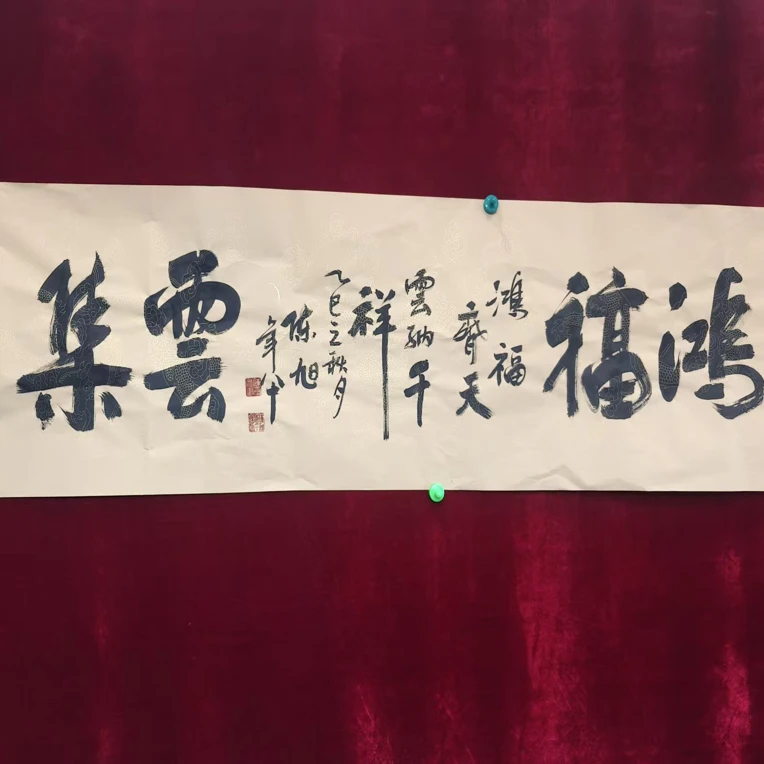 鴻福
鴻福
齊天
雲納千
祥
乙巳之秋月
陈旭
年八十
雲集